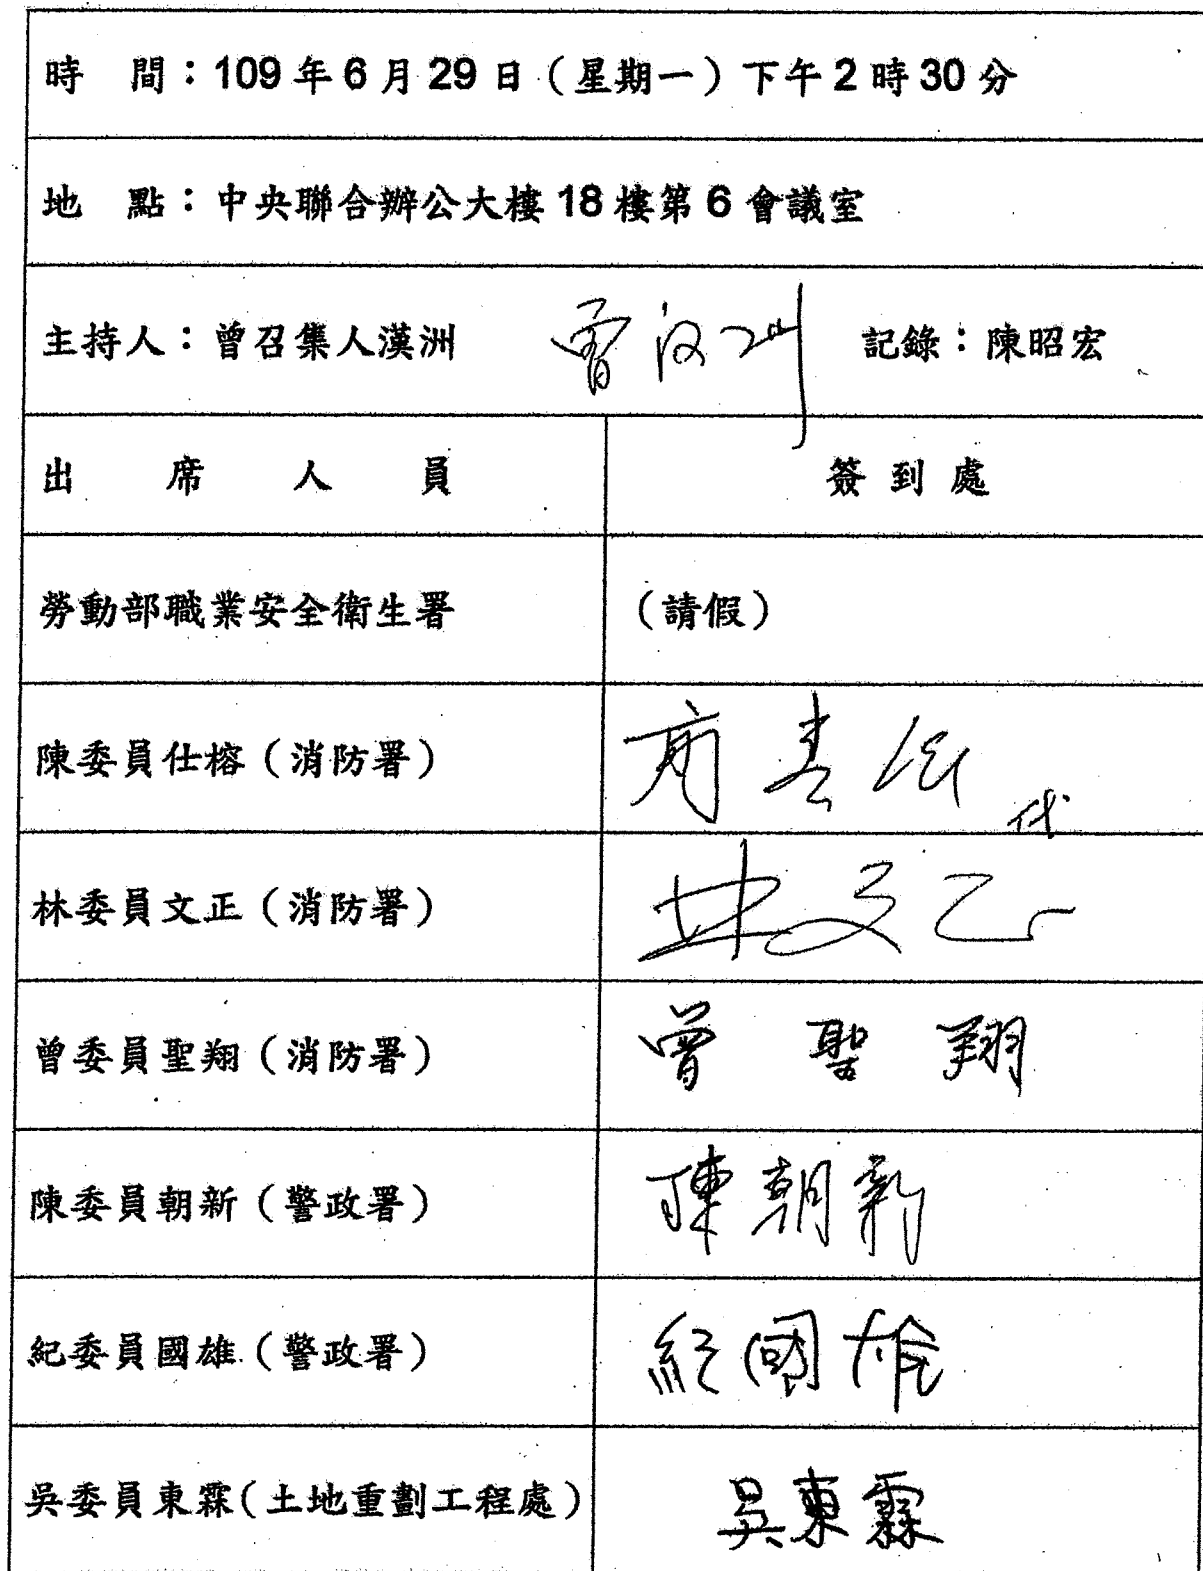 時　間：109年6月29日（星期一）下午2時30分
地　點：中央聯合辦公大樓18樓第6會議室
主持人：曾召集人漢洲　曾漢洲　記錄：陳昭宏
出席人員　簽到處
勞動部職業安全衛生署　（請假）
陳委員仕榕（消防署）　代
林委員文正（消防署）　林文正
曾委員聖翔（消防署）　曾聖翔
陳委員朝新（警政署）　陳朝新
紀委員國雄（警政署）　紀國雄
吳委員東霖（土地重劃工程處）　吳東霖